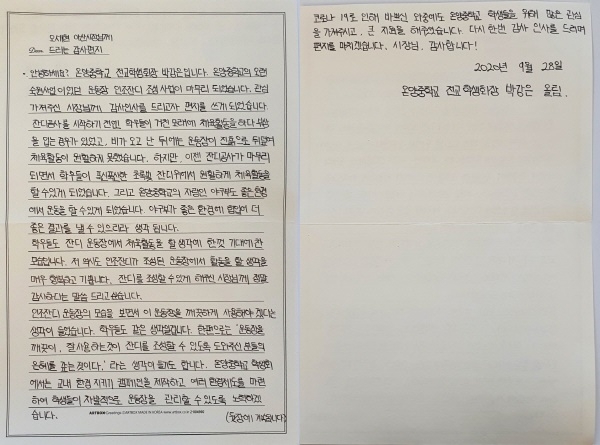 오세현 아산시장님께
Dear. 드리는 감사편지
· 안녕하세요? 온양중학교 전교학생회장 박강은입니다. 온양중학교의 오랜
숙원사업이었던 운동장 인조잔디 조성 사업이 마무리 되었습니다. 관심
가져주신 시장님께, 감사인사를 드리고자 편지를 쓰게 되었습니다.
잔디공사를 시작하기 전엔, 학우들이 거친 모래에 체육활동을 하다 부상
을 입는 경우가 있었고, 비가 오고 난 뒤에는 운동장이 진흙으로 뒤덮여
체육활동이 원활하지 못했습니다. 하지만, 이젠 잔디공사가 마무리
되면서 학우들이 푹신푹신한 초록빛 잔디위에서 원활하게 체육활동을
할 수 있게 되었습니다. 그리고 온양중학교의 자랑인 야구부도 좋은 환경
에서 운동을 할 수 있게 되었습니다. 야구부가 좋은 환경에 힘입어 더
좋은 결과를 낼 수 있으리라 생각 됩니다.
학우들도 잔디 운동장에서 체육활동을 할 생각에 한껏 기대에 찬
모습입니다. 저 역시도 인조잔디가 조성된 운동장에서 활동을 할 생각을
매우 행복하고 기쁩니다. 잔디를 조성할 수 있게 해주신 시장님께 정말
감사하다는 말씀 드리고 싶습니다.
인조잔디 운동장의 모습을 보면서 이 운동장을 깨끗하게 사용해야 겠다는
생각이 들었습니다. 학우들도 같은 생각일겁니다. 한편으로는 '운동장을
깨끗이, 잘 사용하는것이 잔디를 조성할 수 있도록 도와주신 분들의
은혜를 갚는 것이다.' 라는 생각이 들기도 합니다. 온양중학교 학생회
에서는 교내 환경 지키기 캠페인을 제작하고 여러 환경제도를 마련
하여 학생들이 자발적으로 운동장을 관리할 수 있도록 노력하겠
습니다.
ARTBOX
(뒷장에 계속됩니다)
코로나 19로 인해 바쁘신 와중에도 온양중학교 학생들을 위해 많은 관심
을 가져주시고, 큰 지원을 해주셨습니다. 다시 한번 감사 인사를 드리며
편지를 마치겠습니다. 시장님, 감사합니다!
2020년 9월 28일
온양중학교 전교 학생회장 박강은 올림.